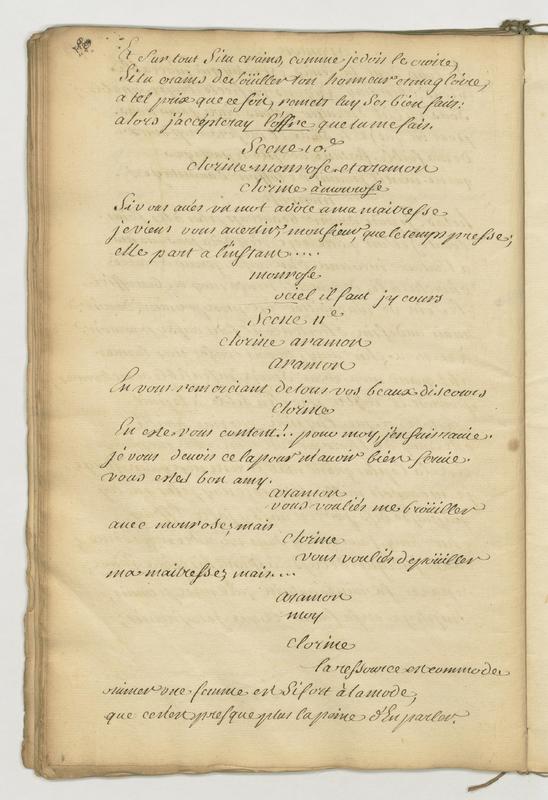 Et sur tout situ crains, comme je dois le croire,
situ crains de soüiller ton honneur et ma gloire,
a tel prix que ce soit, remets luy ses bienfaits:
alors j'accepteray l'offre que tu me fais.
Scene 10.e
clorine monrose et aramon
clorine à monrose
Si vous avés un mot a dire a ma maitresse
je viens vous avertir, monsieur, que le temps presse;
elle part a l'instant....
monrose
o ciel il faut j'y cours
Scene 11e
clorine aramon
aramon
En vous remerciant de tous vos beaux discours
clorine
En este vous content!.. pour moy, j'en suis ravie.
je vous devois cela pour m'avoir bien servie.
vous estes bon amy.
aramon
vous vouliés me broüiller
avec monrose; mais
clorine
vous vouliés depoüiller
ma maitresse; mais....
aramon
moy
clorine
la ressource est commode
ruiner une femme est si fort à la mode,
que ce n'est presque plus la peine d'En parler.